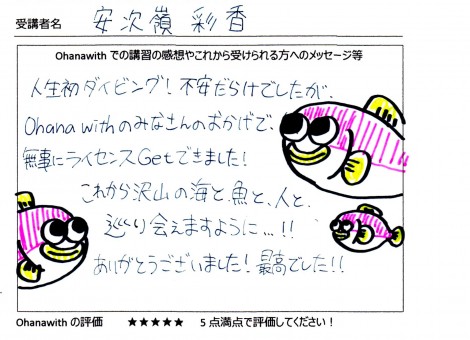 受講者名 安次嶺 彩香
Ohanawith での講習の感想やこれから受けられる方へのメッセージ等
人生初ダイビング！不安だらけでしたが、
Ohana withのみなさんのおかげで
無事にライセンスGetできました！
これから沢山の海と、魚と、人と、
巡り会えますように…！！
ありがとうございました！最高でした！！
Ohanawith の評価 ★★★★★ 5 点満点で評価してください！